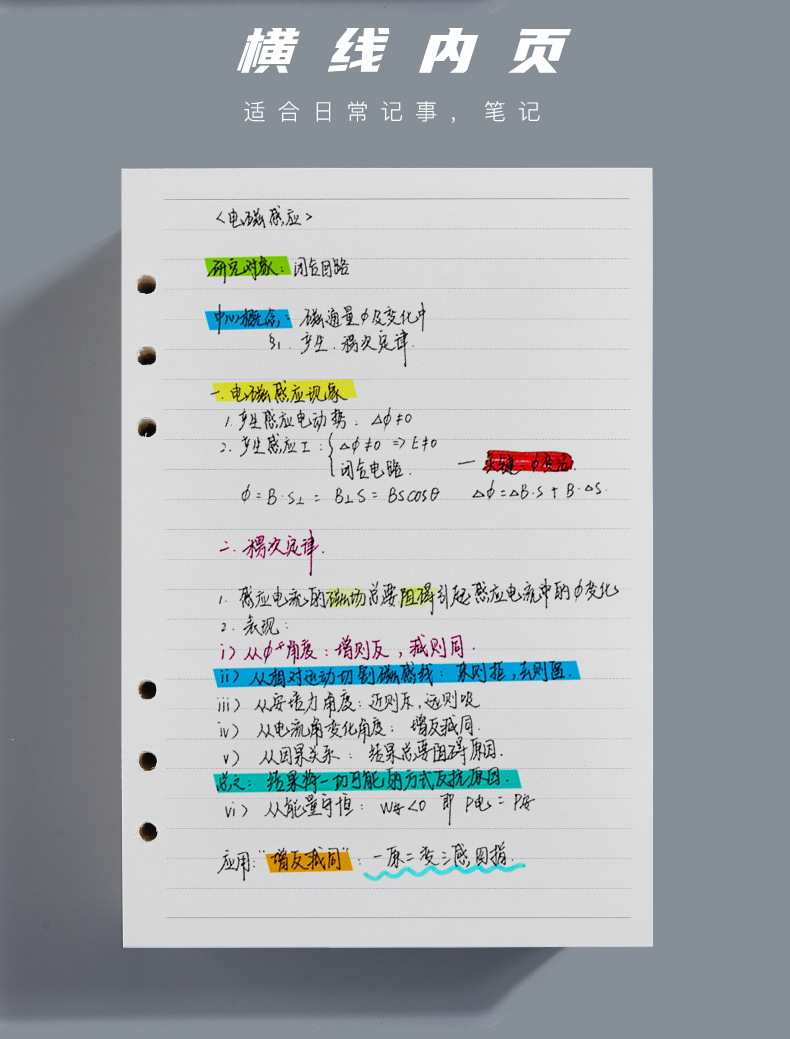 横线内页
适合日常记事，笔记
<电磁感应>
研究对象：闭合回路
中心概念：磁通量φ及变化中
产生．楞次定律．
一．电磁感应现象
1．产生感应电动势：△φ≠0
2．产生感应I：{ △φ≠0 => E≠0
闭合电路．
一 关键 φ变化．
φ=B·S⊥= B⊥S = BScosθ
△φ=△B·S+B·△S．
二．楞次定律．
1．感应电流的磁场总要阻碍引起感应电流中的φ变化
2．表现：
i）从φ角度：增则反，减则同．
ii）从相对运动切割磁感线：来则拒，去则留．
iii）从安培力角度：近则斥，远则吸
iv）从电流变化角度：增反减同．
v）从因果关系：结果总要阻碍原因．
总之：结果将一切可能的方式反抗原因．
vi）从能量守恒：W安<0 即 P电=P安
应用："增反减同"：一原二变三感四指．